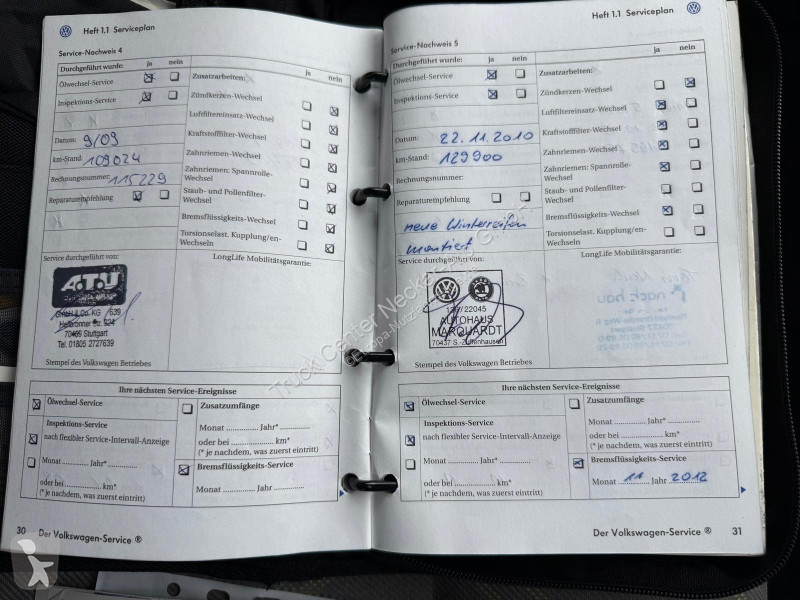 Heft 1.1 Serviceplan
Service-Nachweis 4
Durchgeführt wurde: ja nein
Ölwechsel-Service
Inspektions-Service
Datum: 9/09
km-Stand: 109024
Rechnungsnummer: 115229
Reparaturempfehlung
Zusatzarbeiten: ja nein
Zündkerzen-Wechsel
Luftfiltereinsatz-Wechsel
Kraftstofffilter-Wechsel
Zahnriemen-Wechsel
Zahnriemen: Spannrolle-
Wechsel
Staub- und Pollenfilter-
Wechsel
Bremsflüssigkeits-Wechsel
Torsionselast. Kupplung/en-
Wechseln
Service durchgeführt von:
LongLife Mobilitätsgarantie:
A.T.U
GmbH & Co. KG 639
Heilbronner Str.
70469 Stuttgart
Tel. 01805 2727639
Stempel des Volkswagen Betriebes
Ihre nächsten Service-Ereignisse
Ölwechsel-Service
Inspektions-Service
nach flexibler Service-Intervall-Anzeige
Monat Jahr*
oder bei km*
(* je nachdem, was zuerst eintritt)
Zusatzumfänge
Monat Jahr*
oder bei km*
(* je nachdem, was zuerst eintritt)
Bremsflüssigkeits-Service
Monat Jahr
30 Der Volkswagen-Service ®
Heft 1.1 Serviceplan
Service-Nachweis 5
Durchgeführt wurde: ja nein
Ölwechsel-Service
Inspektions-Service
Datum: 22.11.2010
km-Stand: 129900
Rechnungsnummer:
Reparaturempfehlung
neue Winterreifen
montiert
Zusatzarbeiten: ja nein
Zündkerzen-Wechsel
Luftfiltereinsatz-Wechsel
Kraftstofffilter-Wechsel
Zahnriemen-Wechsel
Zahnriemen: Spannrolle-
Wechsel
Staub- und Pollenfilter-
Wechsel
Bremsflüssigkeits-Wechsel
Torsionselast. Kupplung/en-
Wechseln
Service durchgeführt von:
LongLife Mobilitätsgarantie:
22045
AUTOHAUS
MARQUARDT
70437 S.-Zuffenhausen
Stempel des Volkswagen Betriebes
Ihre nächsten Service-Ereignisse
Ölwechsel-Service
Inspektions-Service
nach flexibler Service-Intervall-Anzeige
Monat Jahr*
oder bei km*
(* je nachdem, was zuerst eintritt)
Zusatzumfänge
Monat Jahr*
oder bei km*
(* je nachdem, was zuerst eintritt)
Bremsflüssigkeits-Service
Monat 11 Jahr 2012
Der Volkswagen-Service ® 31
Truck Center Neckar